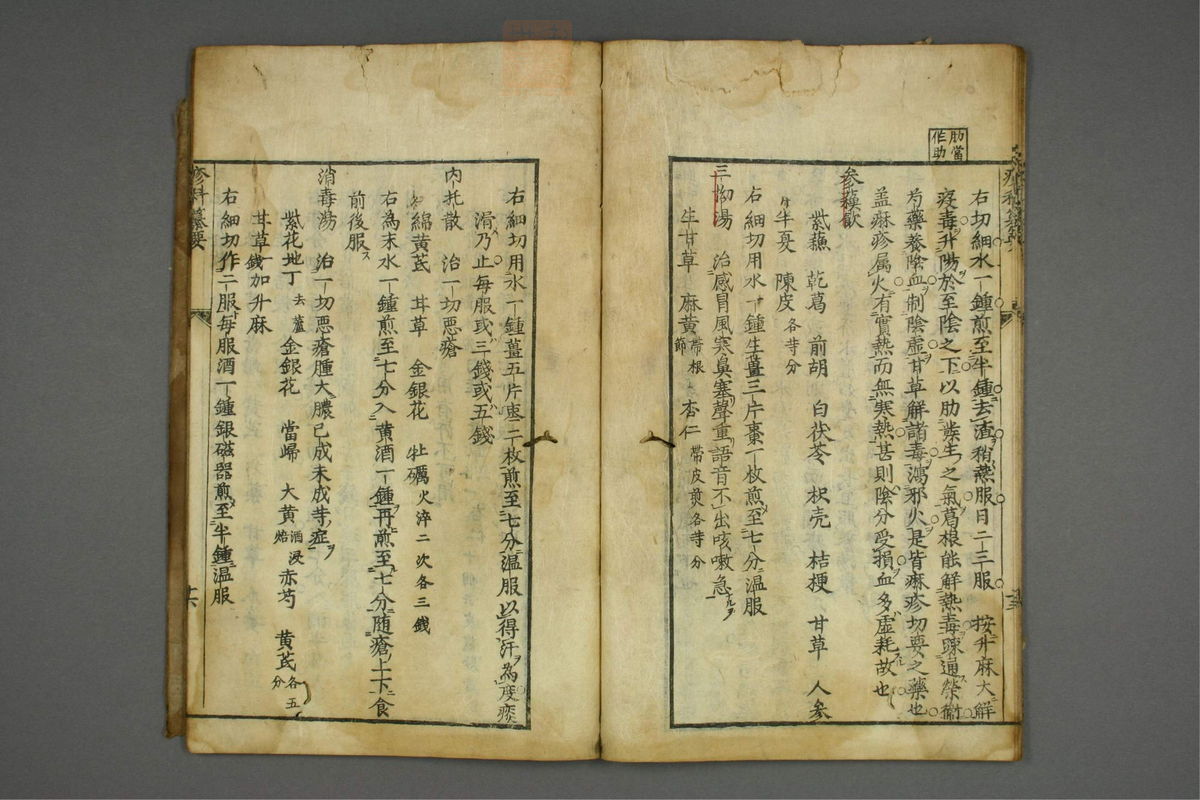 肋當
作助
右切細水一鍾煎至半鍾去渣稍熱服日二三服 按升麻大解
疫毒升陽於至陰之下以肋發生之氣葛根能解熱毒疎通榮衞
芍藥養陰血制陰虛甘草解諸毒瀉邪火是皆痳疹切要之藥也
盖痳疹属火有實熱而無寒熱甚則陰分受損血多虛耗故也
参蘓飲
紫蘓 乾葛 前胡 白茯苓 枳壳 桔梗 甘草 人参
半夏 陳皮各等分
右細切用水一鍾生薑三片棗一枚煎至七分温服
三拗湯 治感冒風寒鼻塞聲重語音不出咳嗽急
生甘草 麻黄帶根節 杏仁帶皮煎各等分
右細切用水一鍾薑五片棗二枚煎至七分温服以得汗為度痰
滑乃止每服或三錢或五錢
內托散 治一切惡瘡
綿黄芪 甘草 金銀花 牡礪火淬二次各三錢
右為末水一鍾煎至七分入黄酒一鍾再煎至七分随瘡上下食
前後服
消毒湯 治一切惡瘡腫大膿已成未成等症
紫花地丁去蘆 金銀花 當歸 大黄酒浸焙 赤芍 黄芪各五分
甘草一錢加升麻
右細切作二服每服酒一鍾銀磁器煎至半鍾温服
疹科纂要
十六